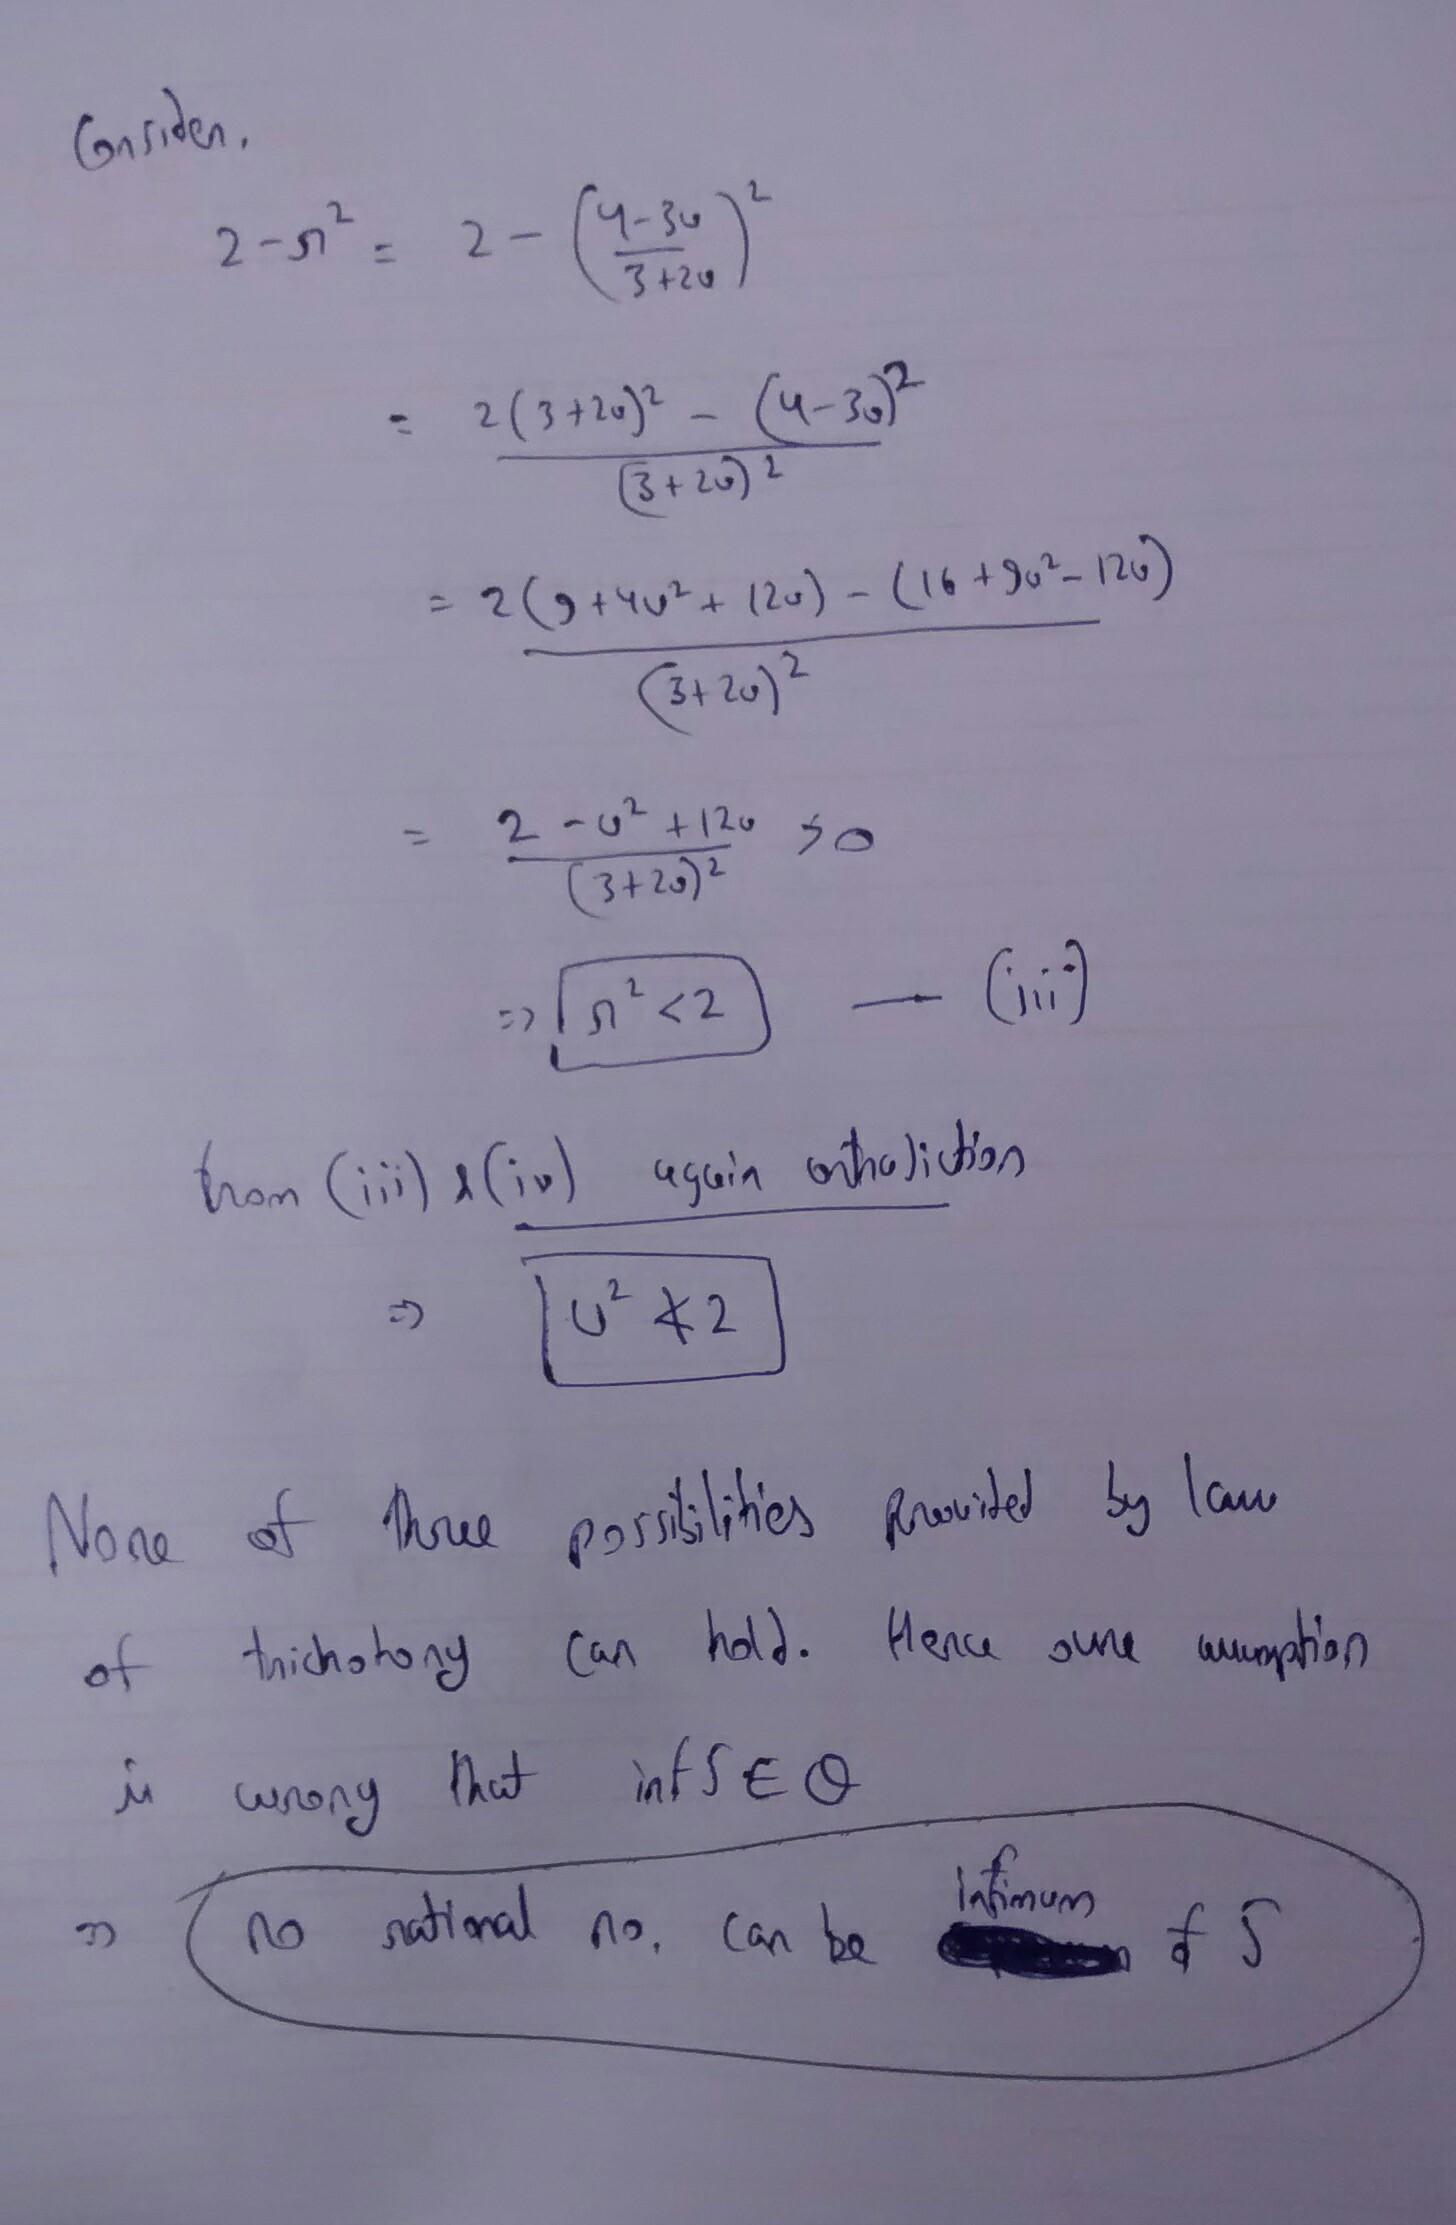 Consider.
2-r² = 2 - (4-3u / 3+2u)²
= 2(3+2u)² - (4-3u)² / (3+2u)²
= 2(9+4u²+12u) - (16+9u²-12u) / (3+2u)²
= 2-u²+12u / (3+2u)² >0
=> r²<2 — (iii)
from (iii) & (iv) again contradiction
=> u² ≮ 2
None of three possibilities provided by law
of trichotony can hold. Hence oure assumption
is wrong that inf S ∈ Q
=> no rational no. can be infimum of S